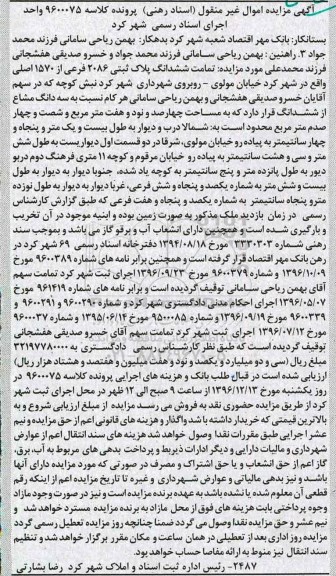 آگهی مزایده اموال غیر منقول (اسناد رهنی) پرونده کلاسه ۹۶۰۰۰۷۵ واحد
اجرای اسناد رسمی شهر کرد
بستانکار: بانک مهر اقتصاد شعبه شهر کرد بدهکار: بهمن ریاحی سامانی فرزند محمد
جواد ۳. راهنین : بهمن ریاحی سامانی فرزند محمد جواد و خسرو صدیقی هفشجانی
فرزند محمدعلی مورد مزایده: تمامت ششدانگ پلاک ثبتی ۲۰۸۶ فرعی از ۱۵۷۰ اصلی
واقع در شهر کرد خیابان مولوی - روبروی شهرداری شهر کرد نبش کوچه که در سهم
آقایان خسرو صدیقی هفشجانی و بهمن ریاحی سامانی هر کام نسبت به سه دانگ مشاع
از ششدانگ قرار دارد که به مساحت چهارصد و نود و هفت متر مربع و شصت و چهار
صدم متر مربع محدود است به: شمالا درب و دیوار به طول بیست و یک متر و پنجاه و
چهار سانتیمتر به پیاده رو خیابان مولوی، شرقا در دو قسمت اول دیواریست به طول شش
متر و سی و هشت سانتیمتر به پیاده رو خیابان مرقوم و کوچه ۱۱ متری فرهنگ دوم دربو
دیور به طول پانزده متر و پنج سانتیمتر به کوچه یاد شده، جنوبا دیوار به دیوار به طول
بیست و شش متر به شماره یکصد و پنجاه و شش فرعی، غربا دیوار به دیوار به طول نوزده
مترو پنجاه سانتیمتر به شماره یکصد و پنجاه و هفت فرعی که طبق گزارش کارشناس
رسمی در زمان بازدید ملک مذکور به صورت زمین بوده و ابنیه موجود در آن تخریب
و بارگیری شده است و همچنین دارای انشعاب آب و برقو گاز می باشد و بموجب سند
رهنی شماره ۳۳۳۰۳۰۳ مورخ ۱۳۹۴/۰۸/۱۸ دفترخانه اسناد رسمی ۶۹ شهر کرد در
رهن بانک مهر اقتصاد قرار گرفته است و همچنین برابر نامه های شماره ۹۶۰۰۳۸۹ مورخ
۱۳۹۶/۱۰/۰۹ و شماره ۹۶۰۰۳۷۹ مورخ ۱۳۹۶/۰۹/۲۳ اجرای ثبت شهر کرد تمامت سهم
آقای بهمن ریاحی سامانی توقیف گردیده است و برابر نامه های شماره ۹۶۱۴۱۹ مورخ
۱۳۹۶/۰۵/۰۷ اجرای احکام مدنی دادگستری شهر کرد و شماره ۹۶۰۰۲۹۰ و ۹۶۰۰۲۹۱ و
۹۶۰۰۳۳۹ مورخ ۱۳۹۶/۰۹/۱۹ وشماره ۹۵۰۰۰۸۵ مورخ ۱۳۹۵/۰۶/۱۴ و شماره ۹۶۰۰۰۳۷
مورخ ۱۳۹۶/۰۷/۱۲ اجرای ثبت شهر کرد تمامت سهم آقای خسرو صدیقی هفشجانی
توقیف گردیده است که طبق نظر کارشناس رسمی دادگستری به ۳۲۱۹۷۷۸۰۰۰۰
مبلغ ریال (سی و دو میلیارد و یکصد و نود و هفت میلیون و هفتصد و هشتاد هزار ریال)
ارزیابی شده است در قبال طلب بانک و هزینه های اجرایی پرونده کلاسه ۹۶۰۰۰۷۵ در
روز یکشنبه مورخ ۱۳۹۶/۱۲/۱۳ از ساعت ۹ صبح الی ۱۲ ظهر در محل اجرای ثبت شهر
کرد از طریق مزایده حضوری نقد به فروش می رسد مزایده از مبلغ ارزیابی شروع و به
بالاترین قیمتی که خریدار داشته باشد واگذار و هزینه های قانونی اعم از حق مزایده و نیم
عشر اجرایی طبق مقررات نقدا وصول خواهد شد هزینه های سند انتقال اعم از عوارض
شهرداری و مالیات دارایی و دیگر ادارات ذیربط و پرداخت بدهی های مربوط به آب، برق،
گاز اعم از حق انشعاب و یا حق اشتراک و مصرف در صورتی که مورد مزایده دارای آنها
باشد و نیز بدهی مالیاتی و عوارض شهرداری و غیره تا تاریخ مزایده اعم از اینکه رقم
قطعی آن معلوم شده یا نشده باشد به عهده برنده مزایده است و نیز در صورت وجود مازاد
وجوه پرداختی بابت هزینه های فوق از محل مازاد به برنده مزایده مسترد خواهد شد و
نیم عشر و حق مزایده نقدا وصول می گردد ضمنا چنانچه روز مزایده تعطیل رسمی گردد
مزایده روز اداری بعد از تعطیلی در همان ساعت و مکان مقرر برگزار خواهد شد و تنظیم
سند انتقال نیز منوط به ارائه مفاصا حساب خواهد بود.
۲۴۸۷- رئیس اداره ثبت اسناد و املاک شهر کرد رضا بشارتی